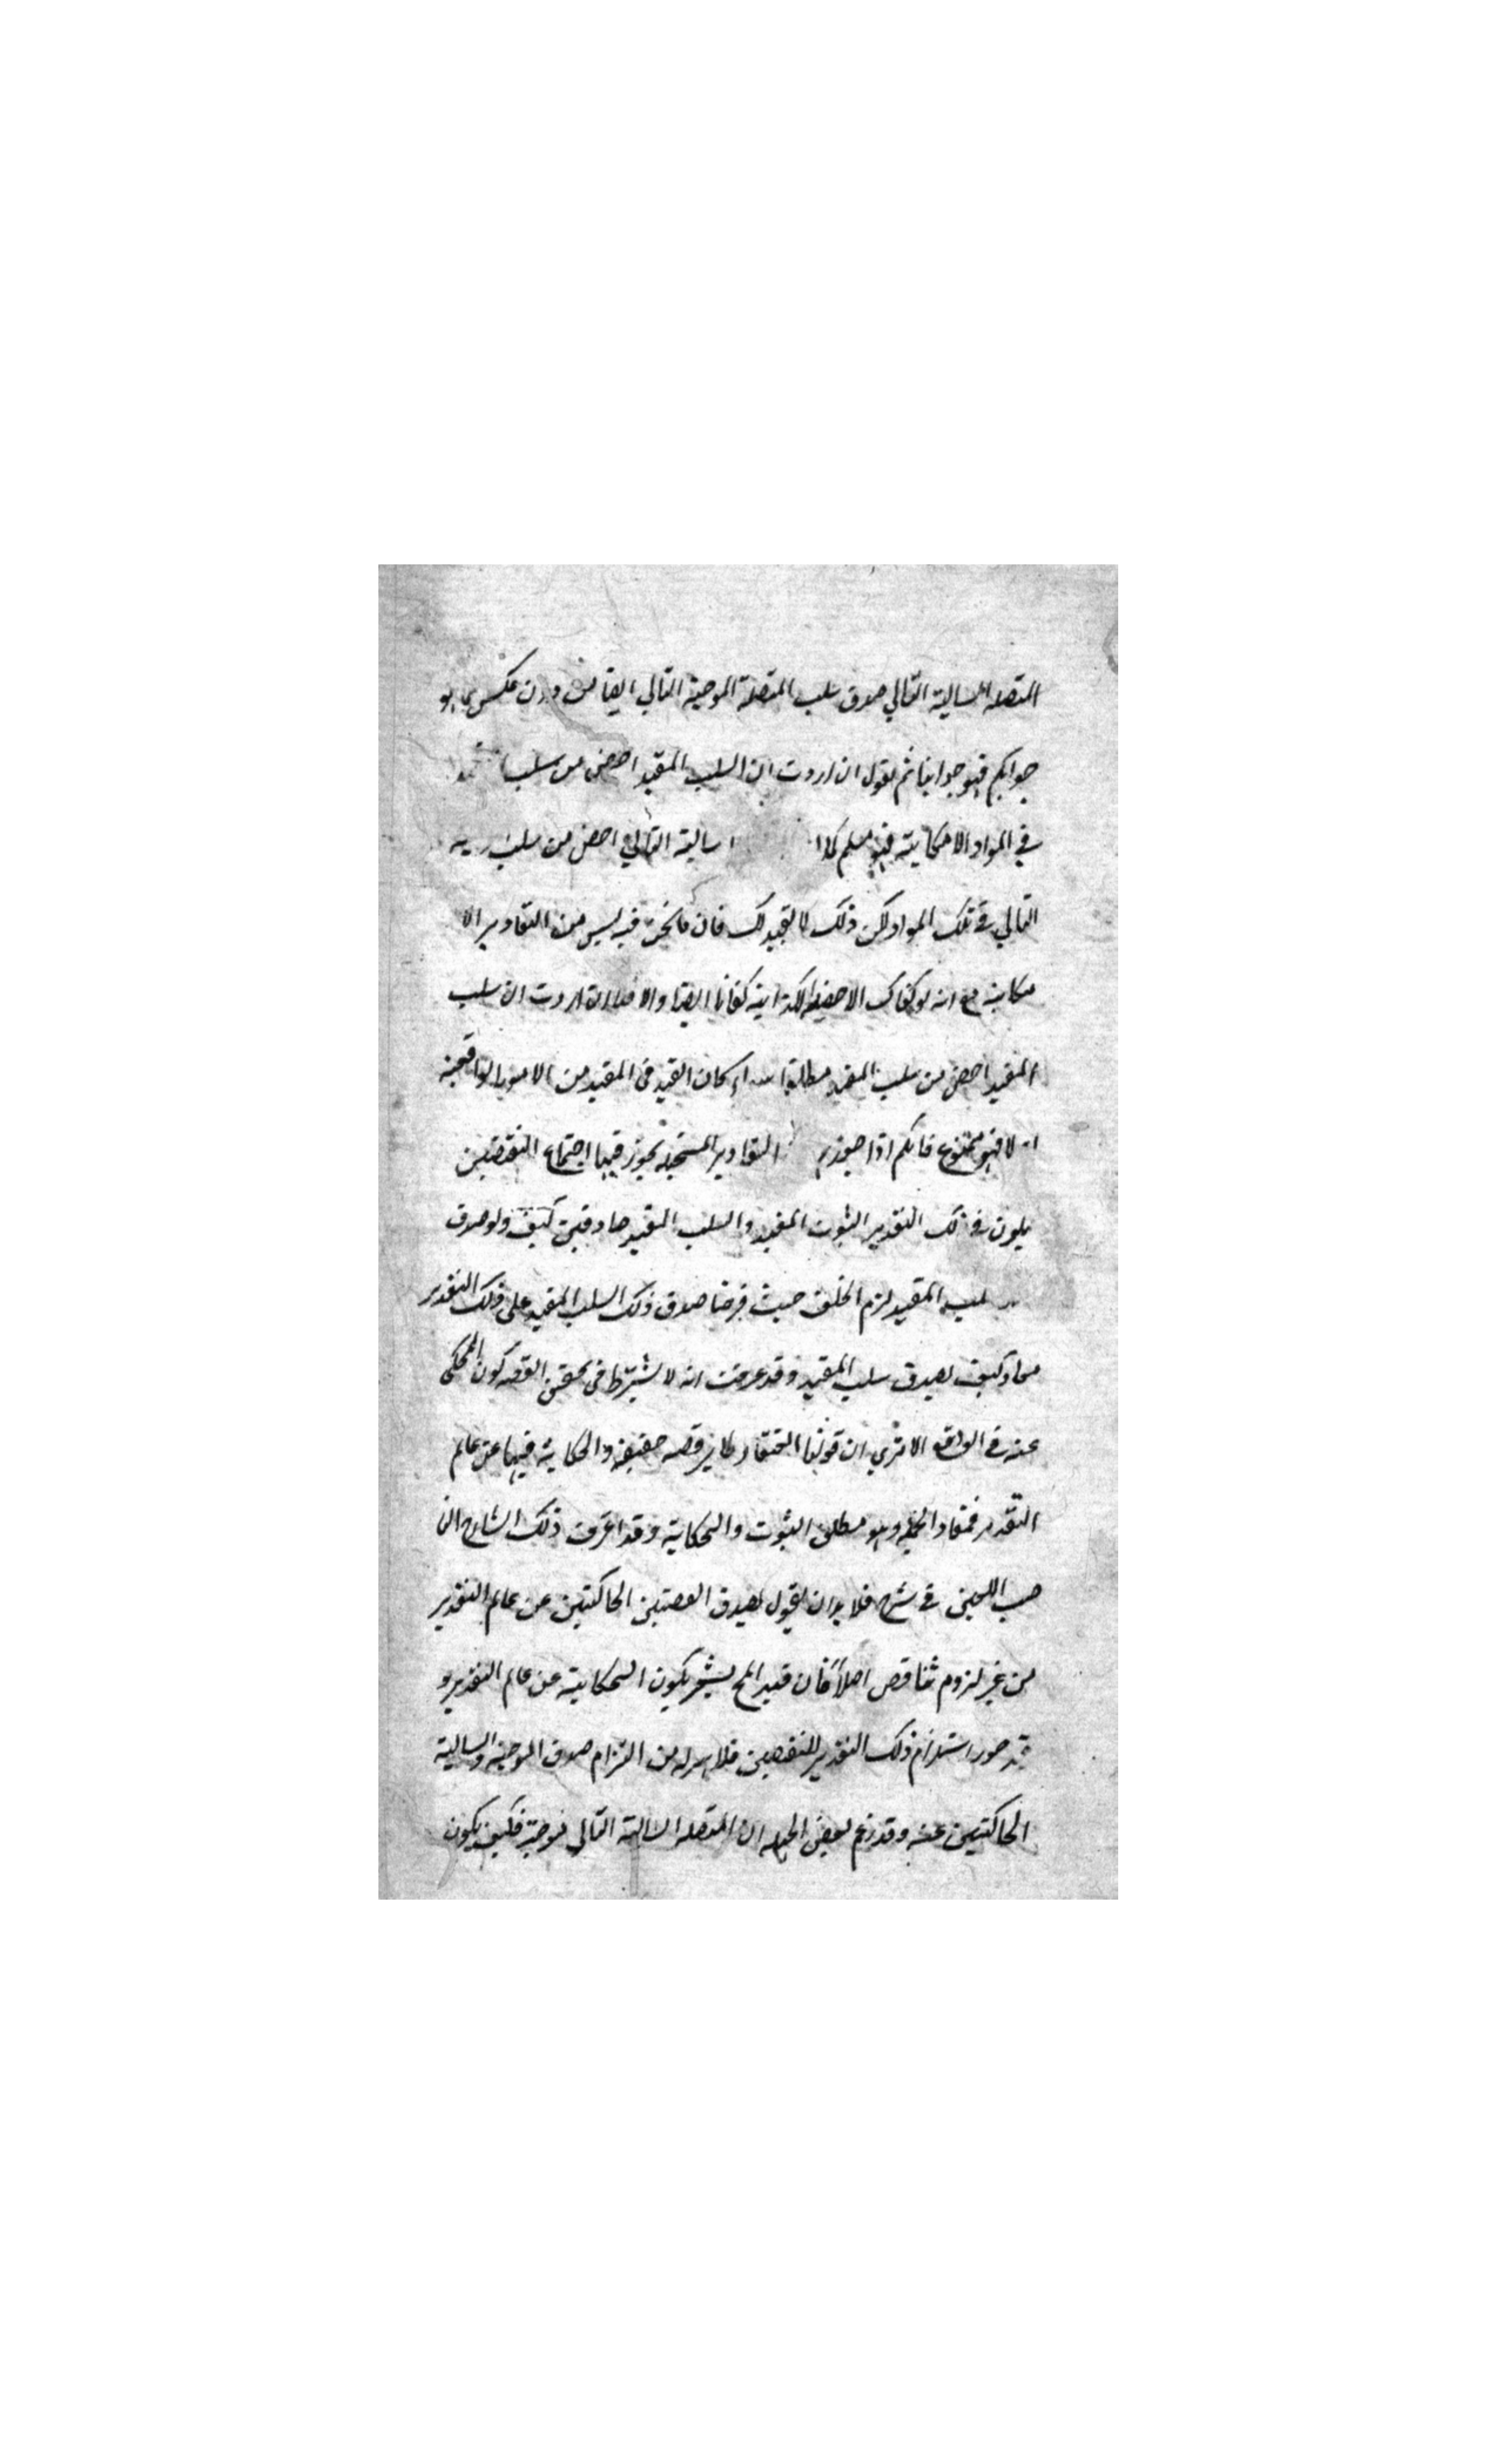 المتصلة السالبة التالي صدق سلب المتصلة الموجبة التالي ايضا من دون عكس فما هو
جوابكم فهو جوابنا ثم نقول ان اردت ان السلب المقيد اخص من سلب
في المواد الامكانية فهو مسلم كما السالبة التالي اخص من سلب
التالي في تلك المواد لكن ذلك لا يفيدك فان ما نحن فيه ليس من التقادير الا
مكانية مع انه لو كفاك الاخصية الكذائية كفانا ايضا والا فلا وان اردت ان سلب
المقيد اخص من سلب المقيد مطلقا سواء كان القيد في المقيد من الامور الواقعية
او لا فهو ممنوع فانكم اذا جوزتم التقادير المستحيلة يجوز فيها اجتماع النقيضين
يكون في ذلك التقدير الثبوت المقيد والسلب المقيد صادقين كيف ولو صدق
سلب المقيد لزم الخلف حيث فرضنا صدق ذلك السلب المقيد على ذلك التقدير
فكيف يصدق سلب المقيد وقد عرفت انه لا يشترط في تحقق القضية كون المحكى
عنه في الواقع الا ترى ان قولنا العنقاء طاير قضية حقيقة والحكاية فيها عن عالم
التقدير فمفاد الحملية وهو مطلق الثبوت والحكاية وقد اعترف ذلك الشارح
في شرحه فلا بد ان يقول بصدق القضيتين الحاكيتين عن عالم التقدير
من غير لزوم تناقض اصلا فان قيد المح يشعر بكون الحكاية عن عالم التقدير و
قد جوز استلزام ذلك التقدير للنقيضين فلا بد له من التزام صدق الموجبة والسالبة
الحاكيتين عنه وقد زعم بعض الجهلة ان المتصلة السالبة التالي موجبة فكيف يكون